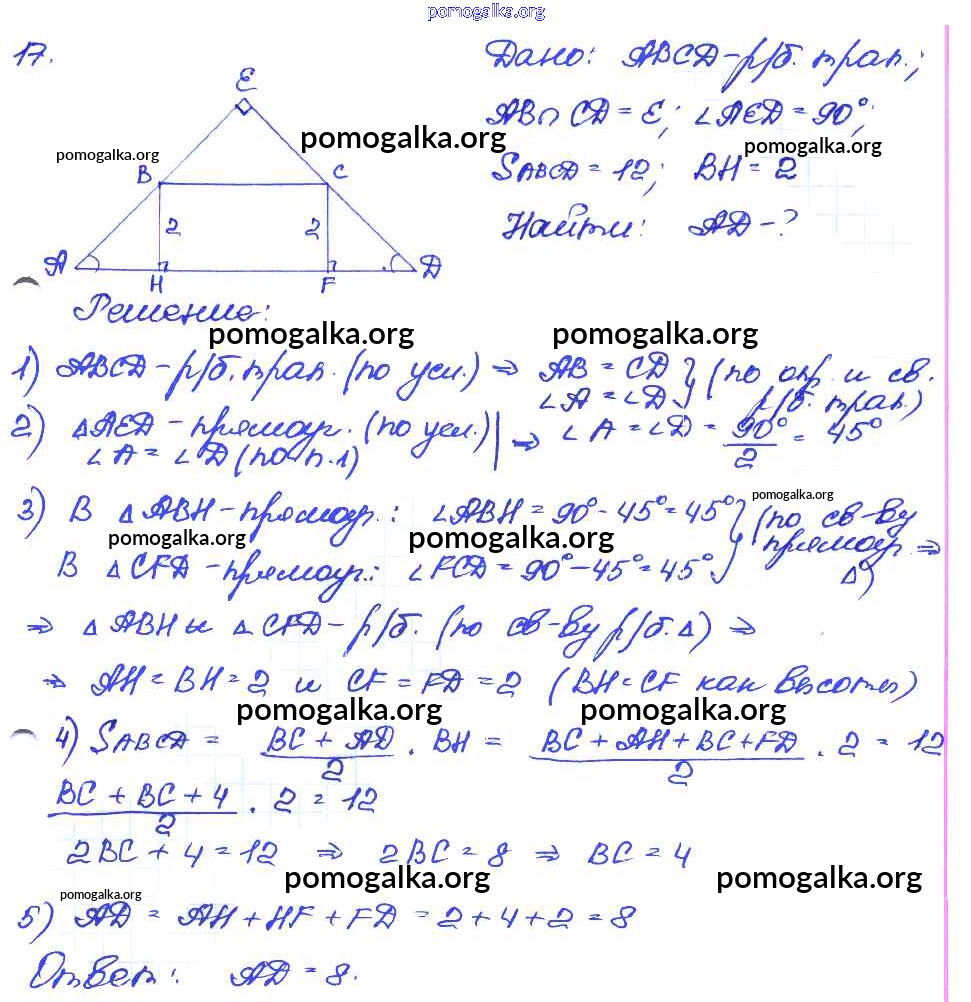 pomogalka.org
17.
Дано: ABCD - р/б. трап.;
E
AB∩CD = E; ∠AED = 90°;
pomogalka.org
pomogalka.org
pomogalka.org
B C
SABCD = 12; BH = 2
2 2
Найти: AD - ?
A H F D
Решение:
pomogalka.org pomogalka.org
1) ABCD - р/б. трап. (по усл.) ⇒ AB = CD } (по опр. и св.
∠A = ∠D } р/б. трап.)
2) △AED - прямоуг. (по усл.) | ⇒ ∠A = ∠D = 90°/2 = 45°
∠A = ∠D (по п. 1)
pomogalka.org
3) В △ABH - прямоуг.: ∠ABH = 90° - 45° = 45° } (по св-ву
pomogalka.org pomogalka.org
прямоуг. ⇒
В △CFD - прямоуг.: ∠FCD = 90° - 45° = 45° } △)
⇒ △ABH и △CFD - р/б. (по св-ву р/б. △) ⇒
⇒ AH = BH = 2 и CF = FD = 2 (BH = CF как высоты)
pomogalka.org pomogalka.org
4) SABCD = BC + AD / 2 · BH = BC + AH + BC + FD / 2 · 2 = 12
BC + BC + 4 / 2 · 2 = 12
2BC + 4 = 12 ⇒ 2BC = 8 ⇒ BC = 4
pomogalka.org pomogalka.org
pomogalka.org
5) AD = AH + HF + FD = 2 + 4 + 2 = 8
Ответ: AD = 8.